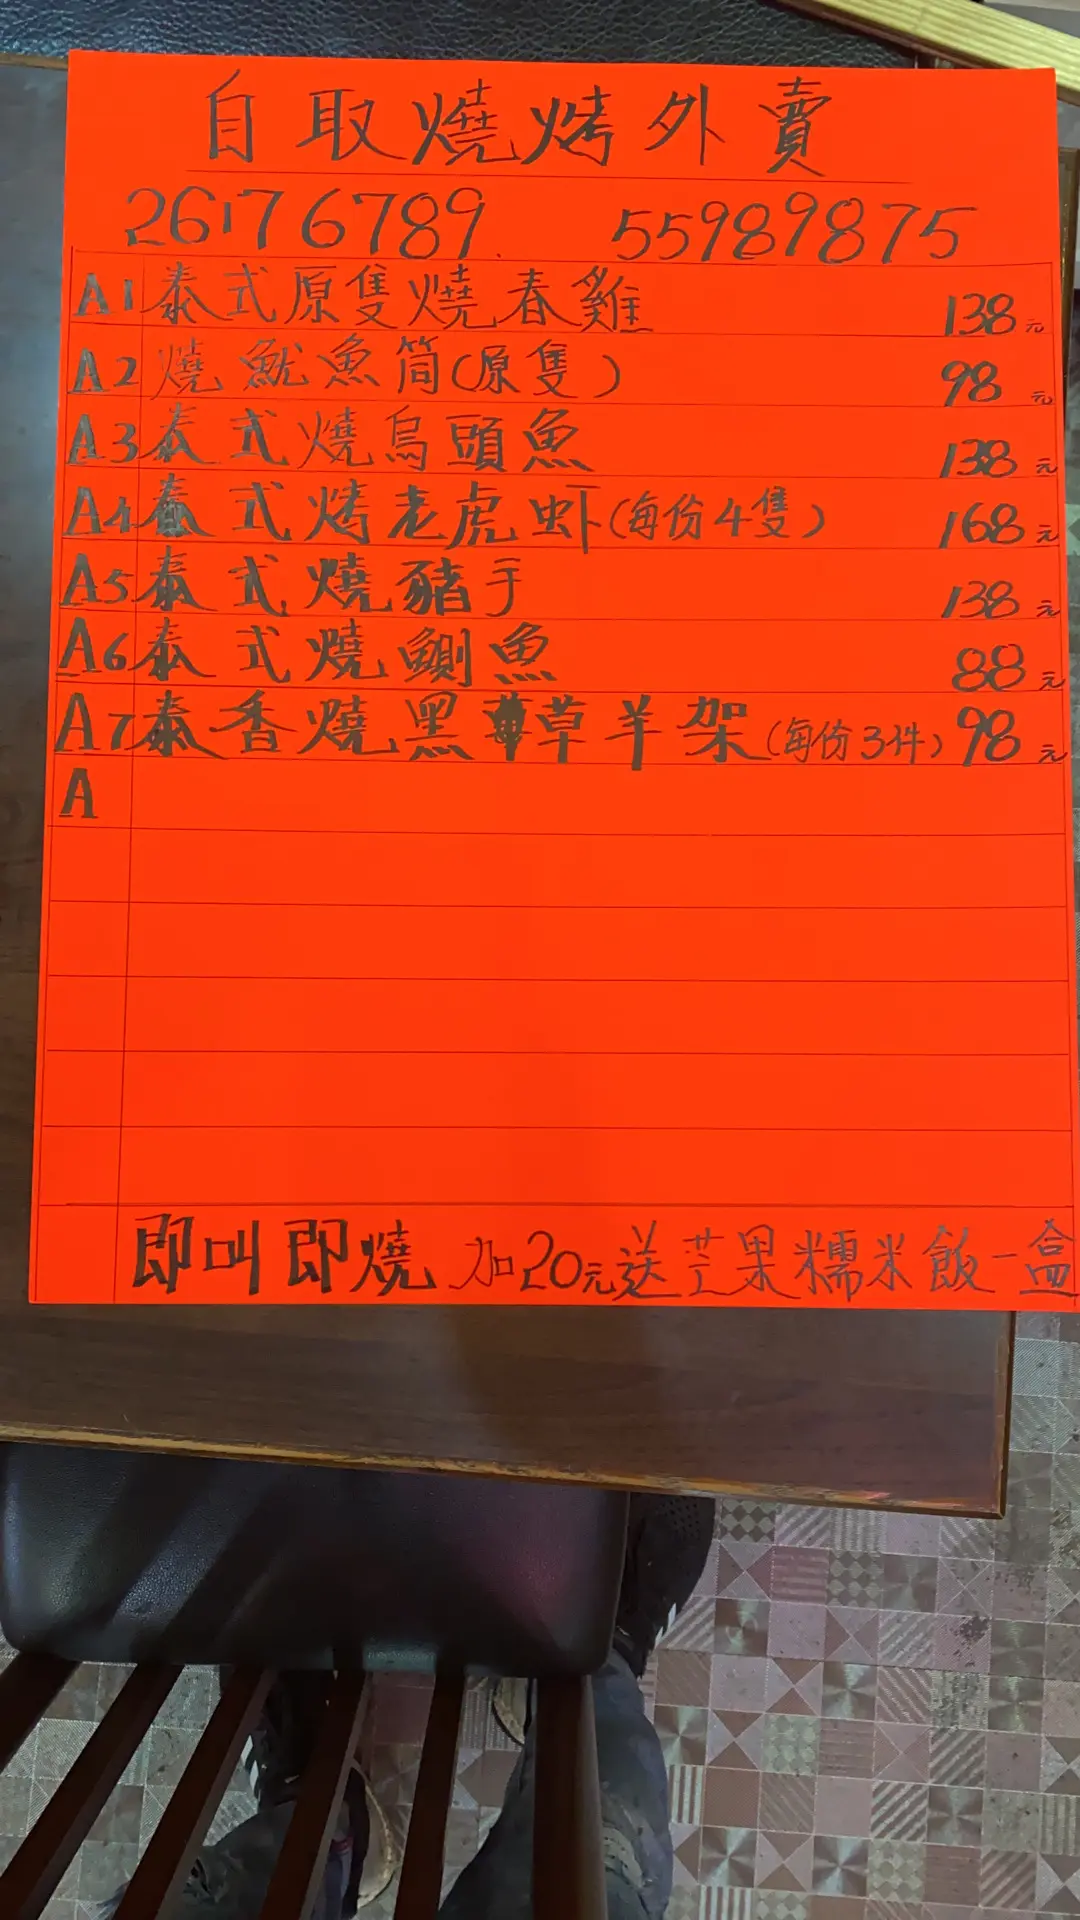 自取燒烤外賣
26176789. 55989875
A1 泰式原隻燒春雞 138元
A2 燒魷魚筒(原隻) 98元
A3 泰式燒烏頭魚 138元
A4 泰式烤老虎虾(每份4隻) 168元
A5 泰式燒豬手 138元
A6 泰式燒鰂魚 88元
A7 泰香燒黑草羊架(每份3件) 98元
A
即叫即燒 加20元送芒果糯米飯一盒